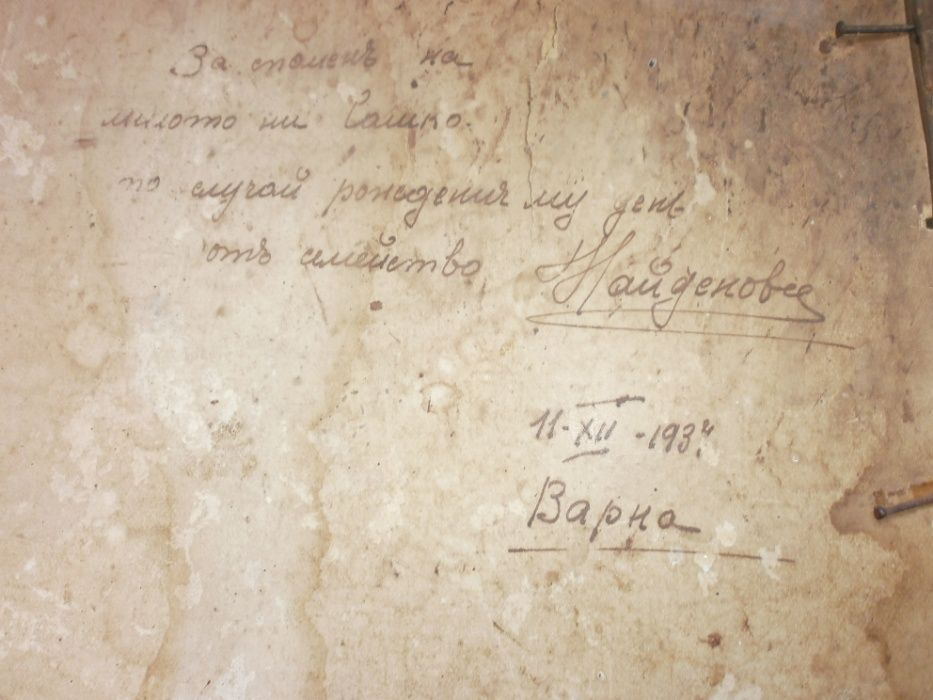 За споменъ на
милото ни Сашко.
по случай рождения му ден
отъ семейство Найденовѣ
11-XII-1934
Варна